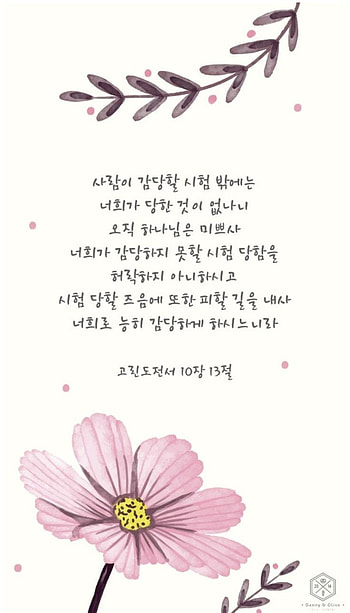 사람이 감당할 시험 밖에는
너희가 당한 것이 없나니
오직 하나님은 미쁘사
너희가 감당하지 못할 시험 당함을
허락하지 아니하시고
시험 당할 즈음에 또한 피할 길을 내사
너희로 능히 감당하게 하시느니라
고린도전서 10장 13절
• Danny & Olive •